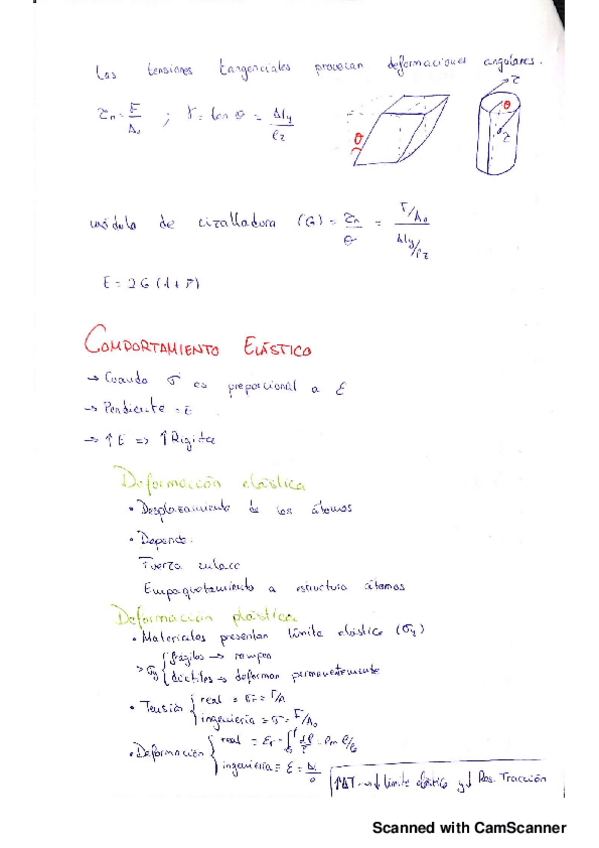 Las tensiones tangenciales provocan deformaciones angulares.
τn = F/A₀ ; γ = tan θ = Δly/lz
θ
θ
τ
τ
módulo de cizalladura (G) = τn/θ = F/A₀ / Δly/lz
E = 2G (1 + ν)
COMPORTAMIENTO ELÁSTICO
→ Cuando σ es proporcional a ε
→ Pendiente = E
→ ↑E => ↑Rigitez
Deformación elástica
• Desplazamiento de los átomos
• Depende:
Fuerza enlace
Empaquetamiento a estructura átomos
Deformación plástica
• Materiales presentan límite elástico (σy)
>σy { frágiles → rompen
dúctiles → deforman permanentemente
• Tensión { real = σr = F/A
ingeniería = σ = F/A₀
• Deformación { real = εr = ∫ dl/l = ln l/l₀
ingeniería = ε = Δl/l₀
↑ΔT → ↓ límite elástico y ↓ Res. Tracción
Scanned with CamScanner